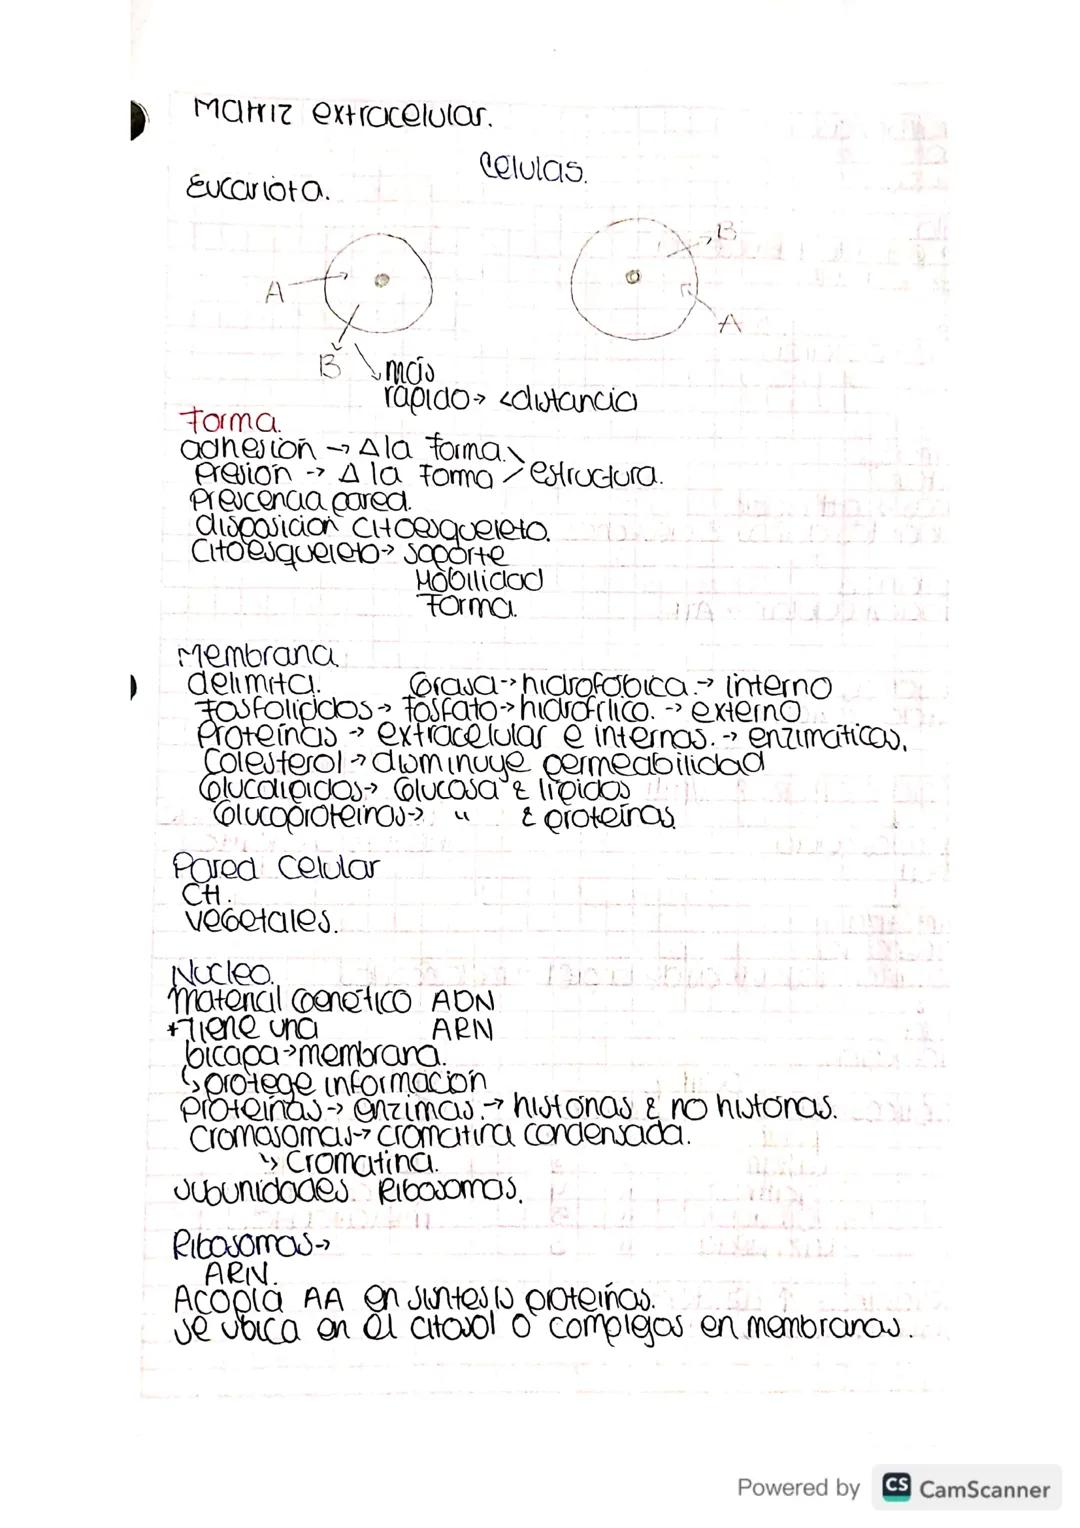 Matriz extracelular.
Celulas.
Eucariota.
A
B
B
A
más
rápido → <distancia
Forma.
adhesión → Δ la forma.
presión → Δ la forma / estructura.
Prescencia pared.
disposición citoesqueleto.
Citoesqueleto → soporte
Mobilidad
Forma.
Membrana
delimita.
Grasa → hidrofóbica. → interno
Fosfolípidos → fosfato → hidrofílico. → externo
Proteínas → extracelular e internas. → enzimáticas.
Colesterol → disminuye permeabilidad
Glucolípidos → Glucosa & lípidos
Glucoproteínas → " & proteínas
Pared Celular
CH.
vegetales.
Nucleo.
Material Genético ADN
*Tiene una ARN
bicapa → membrana.
↳ protege información
proteínas → enzimas. → histonas & no histonas.
Cromosomas → cromatina condensada.
↳ Cromatina.
subunidades Ribosomas.
Ribosomas →
ARN.
Acopla AA en síntesis proteínas.
se ubica en el citosol o complejos en membranas.
Powered by CS CamScanner